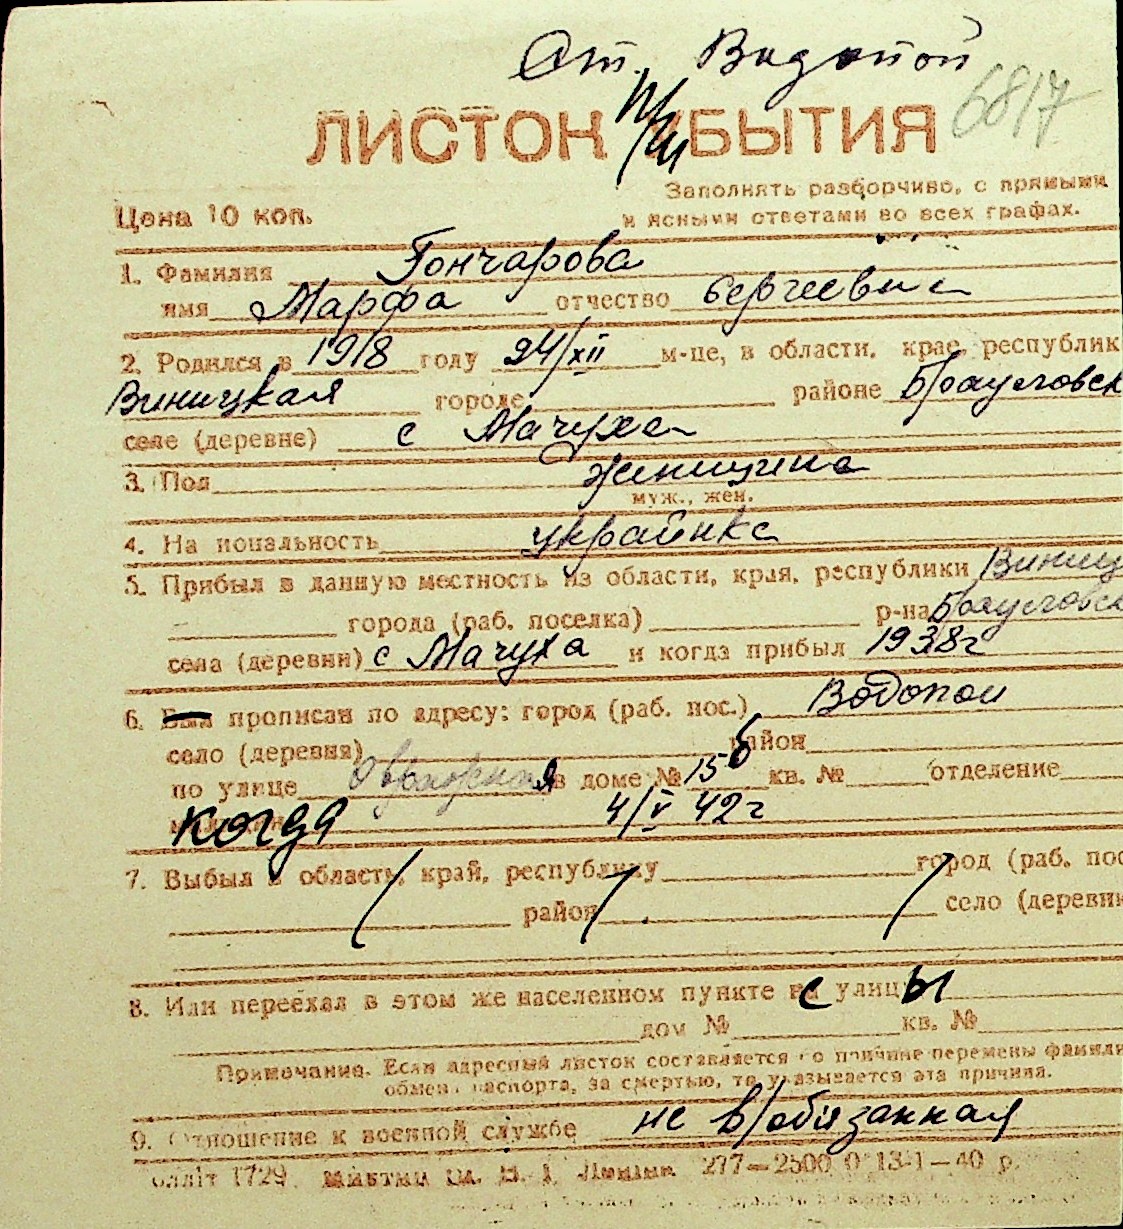 Ст. Водопой
6817
ЛИСТОК УБЫТИЯ
Заполнять разборчиво, с прямыми
Цена 10 коп. и ясными ответами во всех графах.
1. Фамилия Гончарова
имя Марфа отчество Сергеевна
2. Родился в 1918 году 24/XII м-це, в области, крае, республик
Виницкая городе районе Брацловск
селе (деревне) с Мачуха
3. Пол женщина
муж., жен.
4. На иональность украинка
5. Прибыл в данную местность из области, края, республики Виниц
города (раб. поселка) р-на Брацловск
села (деревни) с Мачуха и когда прибыл 1938г
6. Был прописан по адресу: город (раб. пос.) Водопои
село (деревня) район
по улице Овражная в доме № 15б кв. № отделение
когда 4/V 42г
7. Выбыл в область, край, республику город (раб. пос
район село (деревни
8. Или переехал в этом же населенном пункте с улицы
дом № кв. №
Примечание. Если адресный листок составляется по причине перемены фамили
обмен паспорта, за смертью, то указывается эта причина.
9. Отношение к военной службе не в/обязанная
олліт 1729 277—2500 0 13-1—40 р.